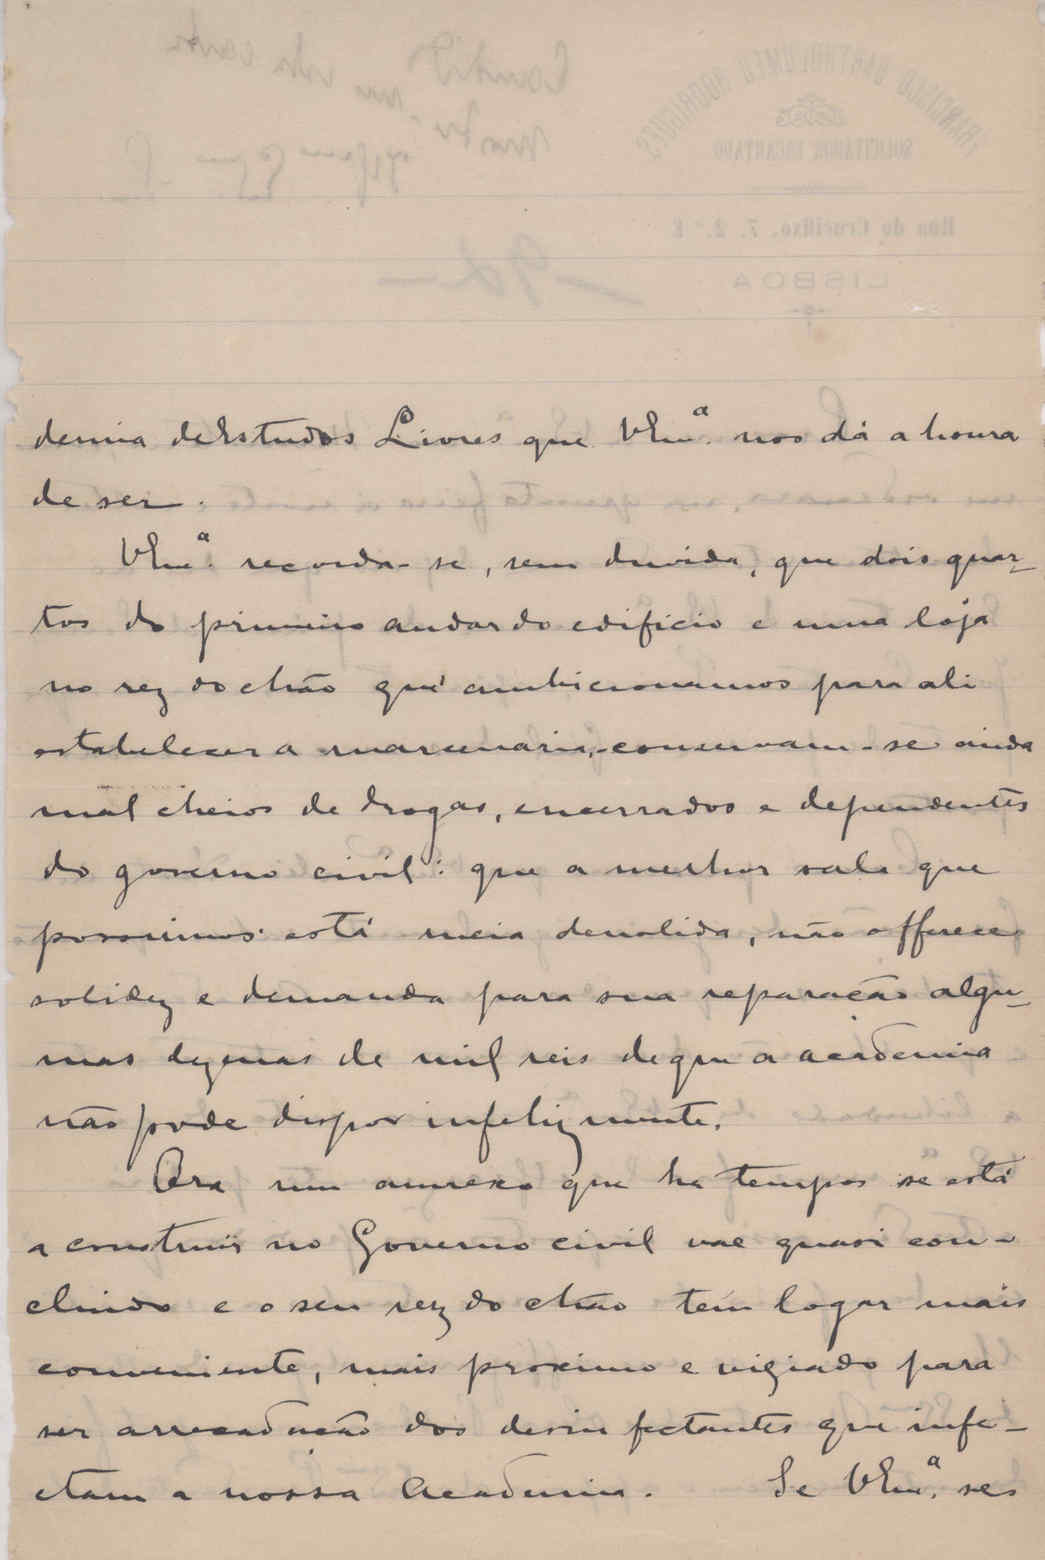 demia de Estudos Livres que V Em.ª nos dá a honra
de ser.
V Em.ª recorda-se, sem duvida, que dois quar-
tos do primeiro andar do edificio e uma loja
no rez do chão que ambicionamos para ali
estabelecer a marcenaria, conservam-se ainda
mal cheios de drogas, encerrados e dependentes
do governo civil: que a melhor sala que
possuimos está meia demolida, não offerece
solidez e demanda para sua reparação algu-
mas dezenas de mil reis de que a academia
não pode dispor infelizmente.
Ora um annexo que ha tempos se está
a construir no Governo civil vae quasi con-
cluido e o seu rez do chão tem logar mais
conveniente, mais proximo e vigiado para
ser arrecadação dos desinfectantes que infe-
ctam a nossa Academia. Se V Em.ª se
FRANCISCO BARTHOLOMEU RODRIGUES
SOLICITADOR ENCARTADO
Rua do Crucifixo, 7, 2.º E
LISBOA